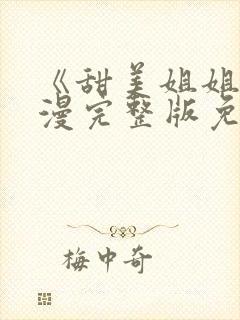 《甜美姐姐
漫完整版免
梅中奇